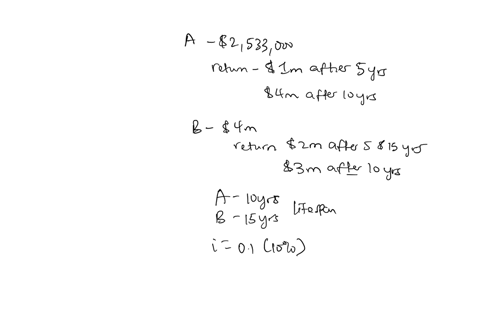 A - $2,533,000
return - $1m after 5yrs
$4m after 10yrs
B - $4m
return $2m after 5 & 15yrs
$3m after 10yrs
A - 10yrs
B - 15yrs lifespan
i = 0.1 (10%)